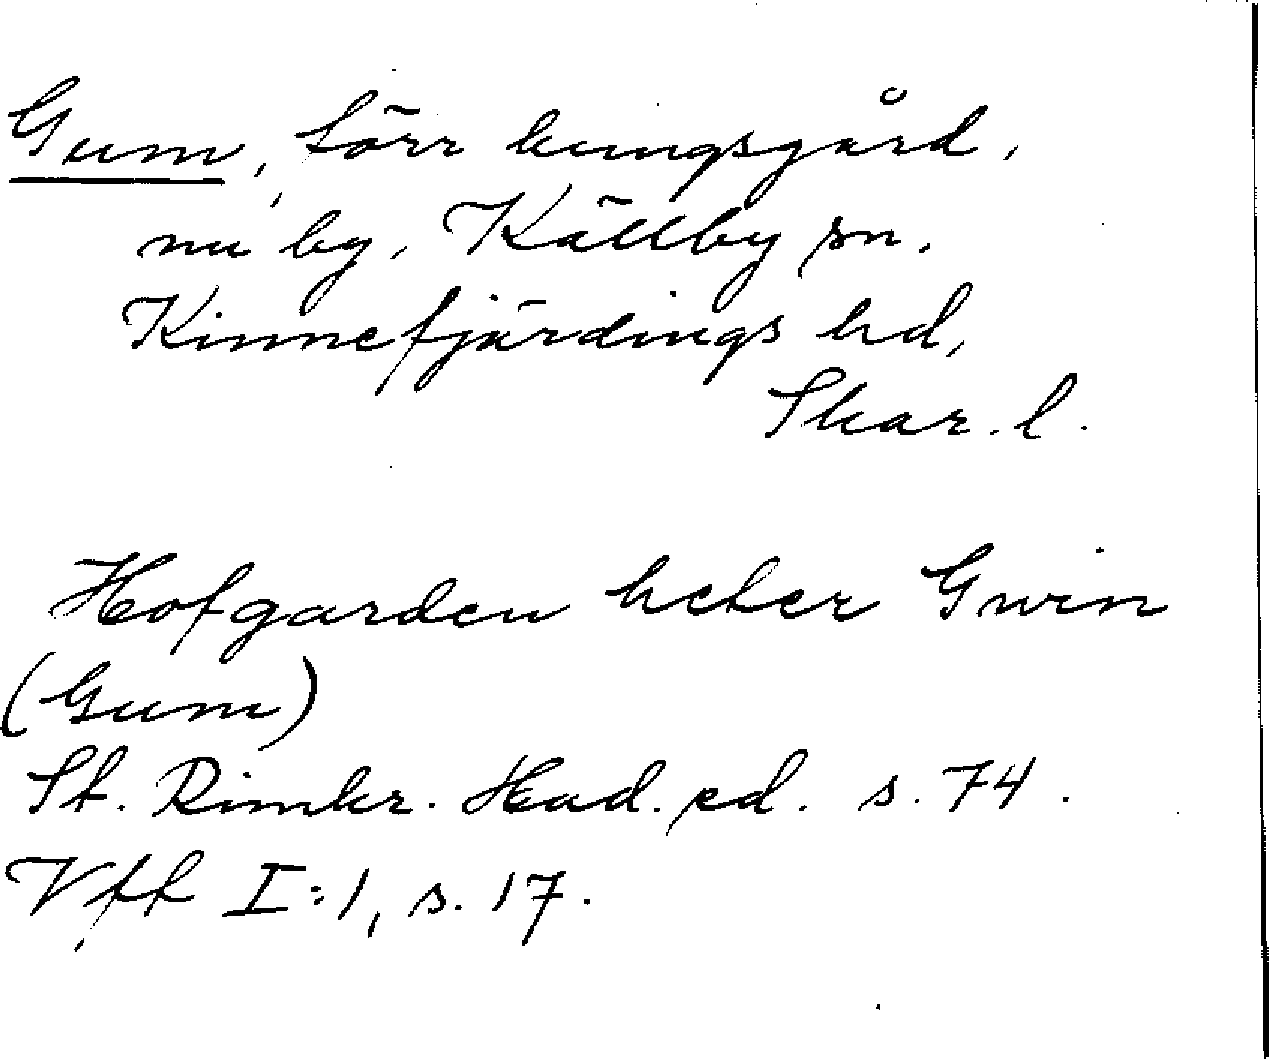 Gum, förr kungsgård,
nu by, Källby sn,
Kinnefjärdings hd,
Skar. l.
Hofgarden heter Gwin
(Gum)
St. Rimkr. Had. ed. s. 74.
Vff I:1, s. 17.